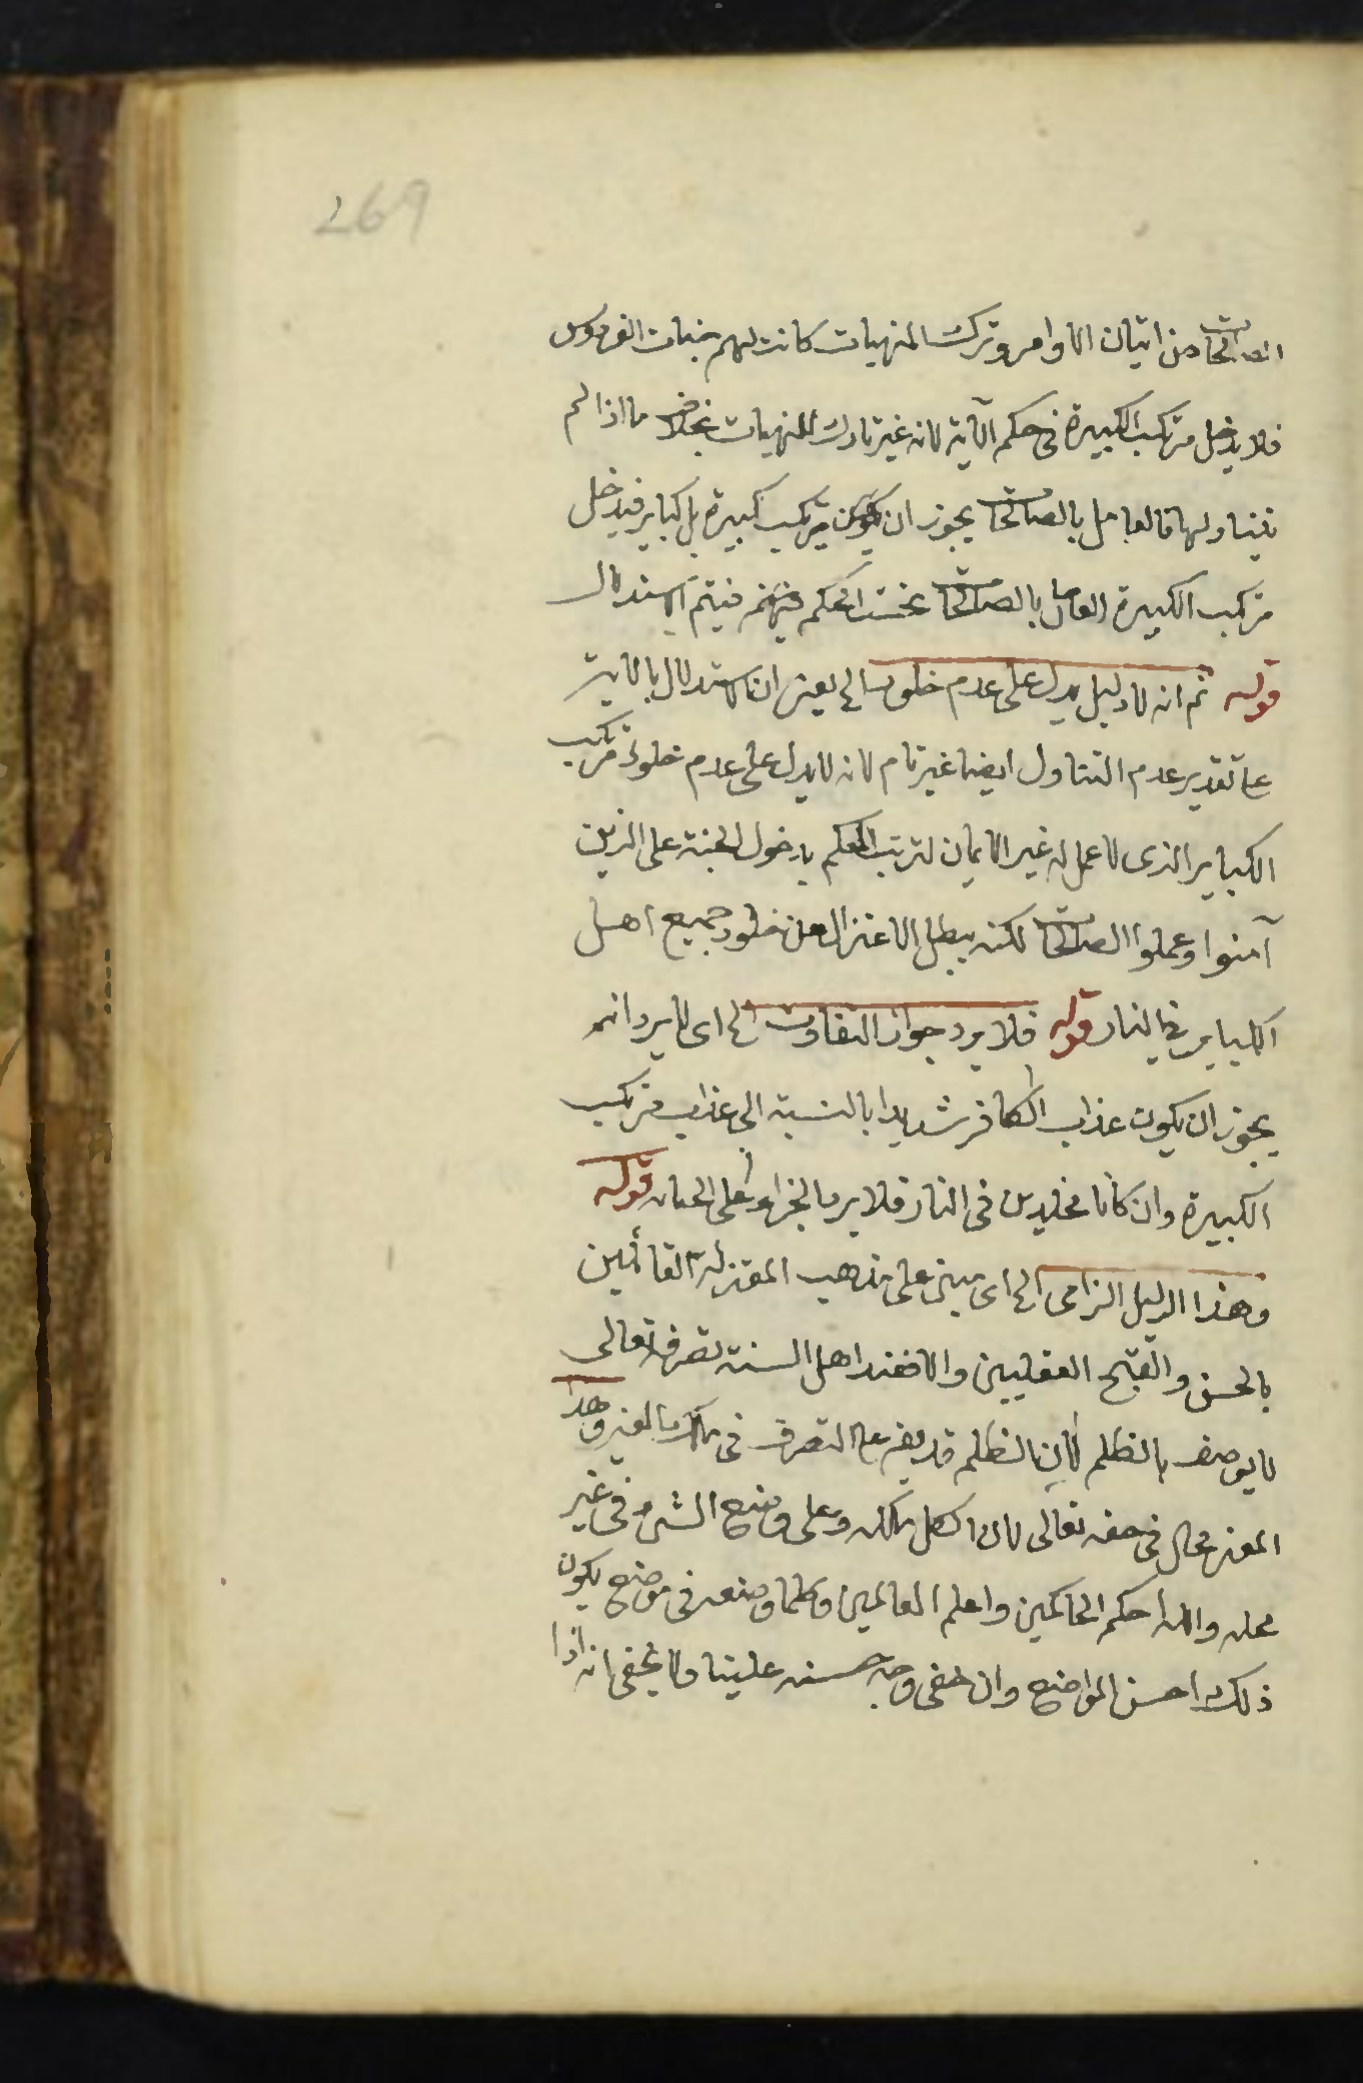 269
الصالحات من اتيان الاوامر وترك المنهيات كانت لهم جنات الفردوس
فلا يدخل مرتكب الكبيرة فى حكم الآية لانه غير تارك للمنهيات بخلاف ما اذا لم
يتناولها فالعامل بالصالحات يجوز ان يكون مرتكب كبيرة بل كباير فيدخل
مرتكب الكبيرة العامل بالصالحات تحت الحكم فيتم الاستدلال
قوله ثم انه لا دليل يدل على عدم خلود الخ يعنى ان الاستدلال بالاية
على تقدير عدم التناول ايضا غير تام لانه لا يدل على عدم خلود مرتكب
الكباير الذى لا عمل له غير الايمان لترتب الحكم بدخول الجنة على الذين
آمنوا وعملوا الصالحات لكنه يبطل الاعتزال من خلود جميع اهل
الكباير فى النار قوله فلا يرد جواز التفاوت الخ اى لا يرد انه
يجوز ان يكون عذاب الكافر شديدا بالنسبة الى عذاب مرتكب
الكبيرة وان كانا مخلدين فى النار فلا يرد الجزاء على الجناية قوله
وهذا الدليل الزامى الخ اى مبنى على مذهب المعتزلة القائلين
بالحسن والقبح العقليين والا فعند اهل السنة تصرفه تعالى
لا يوصف بالظلم لان الظلم قد يقع على التصرف فى ملك الغير وهذا
المعنى محال فى حقه تعالى لان الكل ملكه وعلى وضع الشئ فى غير
محله والله احكم الحاكمين واعلم العالمين وكلما وضعه فى موضع يكون
ذلك احسن المواضع وان خفى وجه حسنه علينا ولا يخفى انه اذا